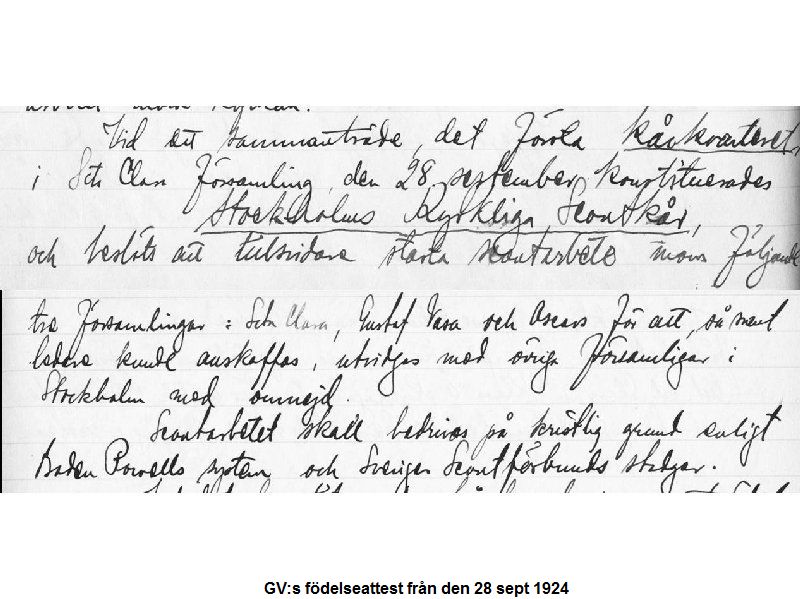 Vid ett sammanträde, det första kårkvarterets
i Sta Clara församling, den 28 september, konstituerades
Stockholms Kyrkliga Scoutkår,
och beslöts att tillsvidare starta scoutarbete inom följande
tre församlingar: Sta Clara, Gustaf Vasa och Oscars för att, så snart
ledare kunde anskaffas, utvidgas med övriga församligar i
Stockholm med omnejd.
Scoutarbetet skall bedrivas på kristlig grund enligt
Baden Powells system och Sveriges Scoutförbunds stadgar.
GV:s födelseattest från den 28 sept 1924